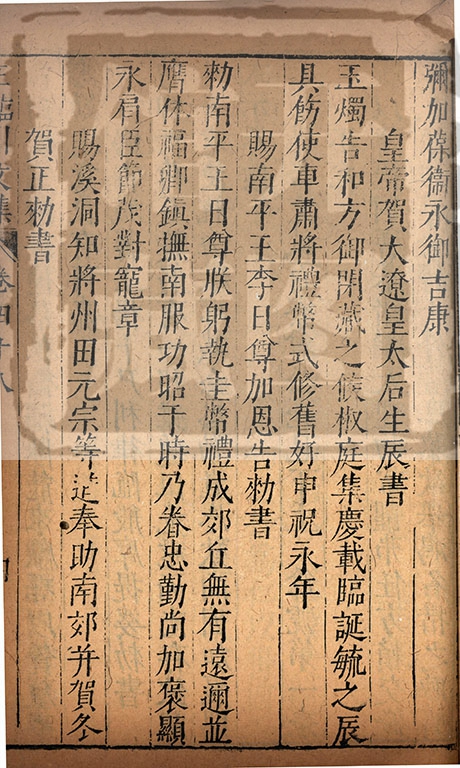 彌加葆衞永御吉康
皇帝賀大遼皇太后生辰書
玉燭告和方御閉藏之候椒庭集慶載臨誕毓之辰
具飭使車肅將禮幣式修舊好申祝永年
賜南平王李日尊加恩告勑書
勑南平王日尊朕躬執圭幣禮成郊丘無有遠邇並
膺休福卿鎮撫南服功昭于時乃眷忠勤尚加褒顯
永肩臣節茂對寵章
賜溪洞知將州田元宗等進奉助南郊并賀冬
賀正勑書
王臨川文集 卷四十八